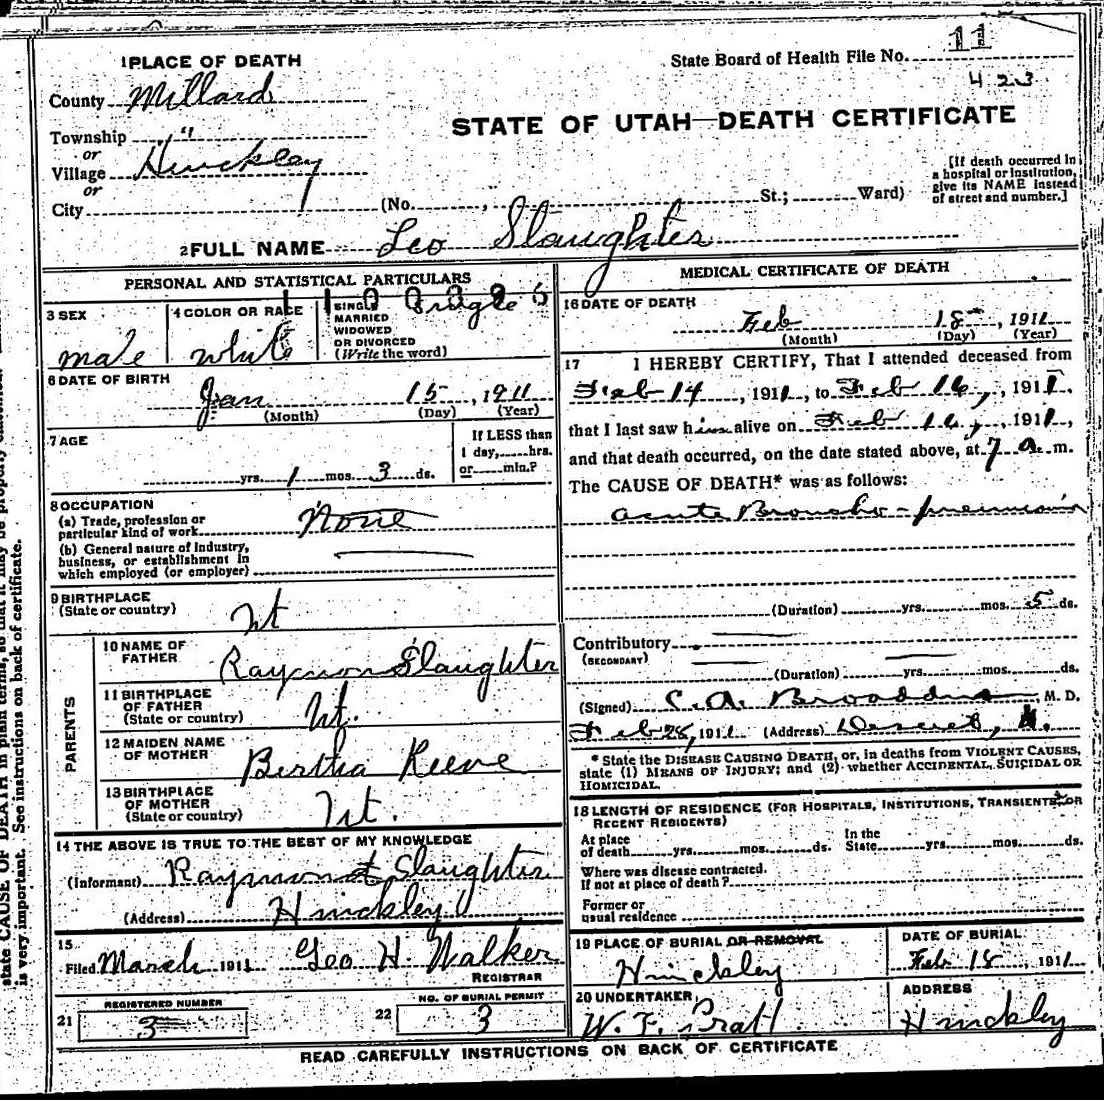 11
1 PLACE OF DEATH
State Board of Health File No.
423
County Millard
STATE OF UTAH—DEATH CERTIFICATE
Township "
or
Village Hinckley
or
City
(No. , St.; Ward)
[If death occurred in
a hospital or institution,
give its NAME instead
of street and number.]
2 FULL NAME Leo Slaughter
PERSONAL AND STATISTICAL PARTICULARS
3 SEX
male
4 COLOR OR RACE
white
SINGLE
MARRIED
WIDOWED
OR DIVORCED
(Write the word)
Single
6 DATE OF BIRTH
Jan 15, 1911
(Month) (Day) (Year)
7 AGE
yrs. 1 mos. 3 ds.
If LESS than
1 day, hrs.
or min.?
8 OCCUPATION
(a) Trade, profession or
particular kind of work None
(b) General nature of industry,
business, or establishment in
which employed (or employer)
9 BIRTHPLACE
(State or country)
Ut
PARENTS
10 NAME OF
FATHER
Raymon Slaughter
11 BIRTHPLACE
OF FATHER
(State or country)
Ut.
12 MAIDEN NAME
OF MOTHER
Bertha Reeve
13 BIRTHPLACE
OF MOTHER
(State or country)
Ut.
14 THE ABOVE IS TRUE TO THE BEST OF MY KNOWLEDGE
(Informant) Raymond Slaughter
(Address) Hinckley
15
Filed March 1911 Geo H. Walker
REGISTRAR
21
REGISTERED NUMBER
3
22
NO. OF BURIAL PERMIT
3
MEDICAL CERTIFICATE OF DEATH
16 DATE OF DEATH
Feb 18, 1911
(Month) (Day) (Year)
17 I HEREBY CERTIFY, That I attended deceased from
Feb 14, 1911, to Feb 16, 1911,
that I last saw him alive on Feb 16, 1911,
and that death occurred, on the date stated above, at 7 a. m.
The CAUSE OF DEATH* was as follows:
acute Broncho-pneumonia
(Duration) yrs. mos. 5 ds.
Contributory
(SECONDARY)
(Duration) yrs. mos. ds.
(Signed) C. A. Broaddus M. D.
Feb 28, 1911 (Address) Deseret,
* State the DISEASE CAUSING DEATH, or, in deaths from VIOLENT CAUSES,
state (1) MEANS OF INJURY; and (2) whether ACCIDENTAL, SUICIDAL OR
HOMICIDAL.
18 LENGTH OF RESIDENCE (FOR HOSPITALS, INSTITUTIONS, TRANSIENTS, OR
RECENT RESIDENTS)
At place
of death yrs. mos. ds.
In the
State yrs. mos. ds.
Where was disease contracted,
If not at place of death?
Former or
usual residence
19 PLACE OF BURIAL OR REMOVAL
Hinckley
DATE OF BURIAL
Feb 18, 1911
20 UNDERTAKER
W. F. Pratt
ADDRESS
Hinckley
READ CAREFULLY INSTRUCTIONS ON BACK OF CERTIFICATE
state CAUSE OF DEATH in plain terms, so that it may be properly
is very important. See instructions on back of certificate.